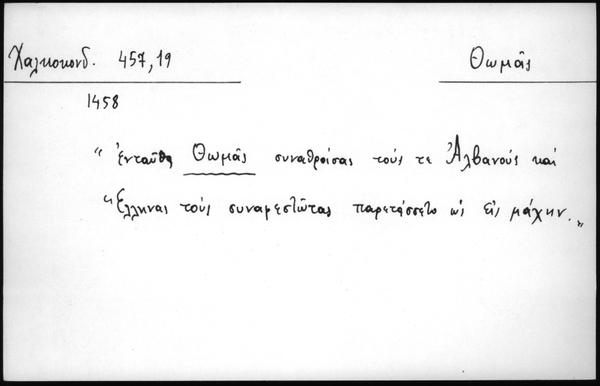 Χαλκοκονδ. 457,19 Θωμᾶς
1458
“ Ἐνταῦθα Θωμᾶς συναθροίσας τούς τε Ἀλβανούς καί
Ἕλληνας τούς συναφεστῶτας παρετάσσετο ὡς εἰς μάχην. „